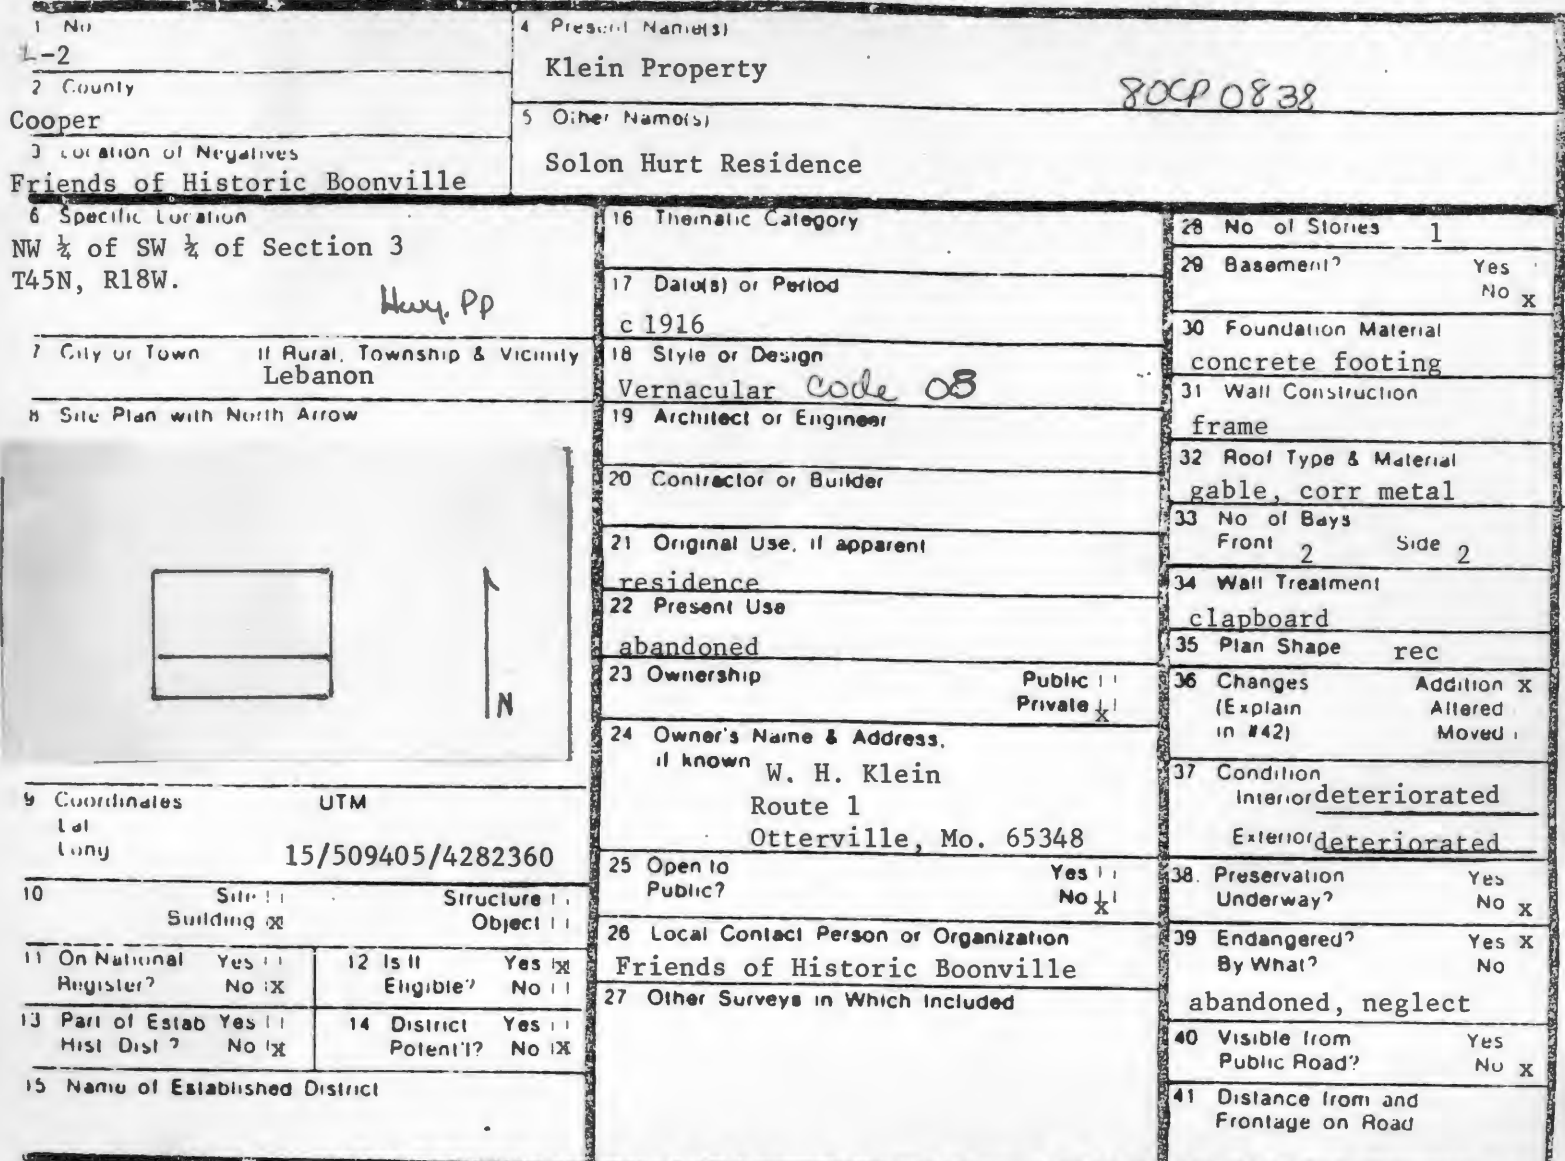 1 No
L-2
2 County
Cooper
3 Location of Negatives
Friends of Historic Boonville
4 Present Name(s)
Klein Property
80CP0838
5 Other Name(s)
Solon Hurt Residence
6 Specific Location
NW ¼ of SW ¼ of Section 3
T45N, R18W.
Hwy. PP
7 City or Town If Rural, Township & Vicinity
Lebanon
8 Site Plan with North Arrow
N
9 Coordinates UTM
Lat
Long 15/509405/4282360
10 Site Structure
Building X Object
11 On National Yes
Register? No X
12 Is It Yes X
Eligible? No
13 Part of Estab Yes
Hist Dist? No X
14 District Yes
Potent'l? No X
15 Name of Established District
16 Thematic Category
17 Date(s) or Period
c 1916
18 Style or Design
Vernacular Code 08
19 Architect or Engineer
20 Contractor or Builder
21 Original Use, if apparent
residence
22 Present Use
abandoned
23 Ownership Public
Private X
24 Owner's Name & Address,
if known W. H. Klein
Route 1
Otterville, Mo. 65348
25 Open to Yes
Public? No X
26 Local Contact Person or Organization
Friends of Historic Boonville
27 Other Surveys in Which Included
28 No of Stories 1
29 Basement? Yes
No X
30 Foundation Material
concrete footing
31 Wall Construction
frame
32 Roof Type & Material
gable, corr metal
33 No of Bays
Front 2 Side 2
34 Wall Treatment
clapboard
35 Plan Shape rec
36 Changes Addition X
(Explain Altered
in #42) Moved
37 Condition
Interior deteriorated
Exterior deteriorated
38. Preservation Yes
Underway? No X
39 Endangered? Yes X
By What? No
abandoned, neglect
40 Visible from Yes
Public Road? No X
41 Distance from and
Frontage on Road